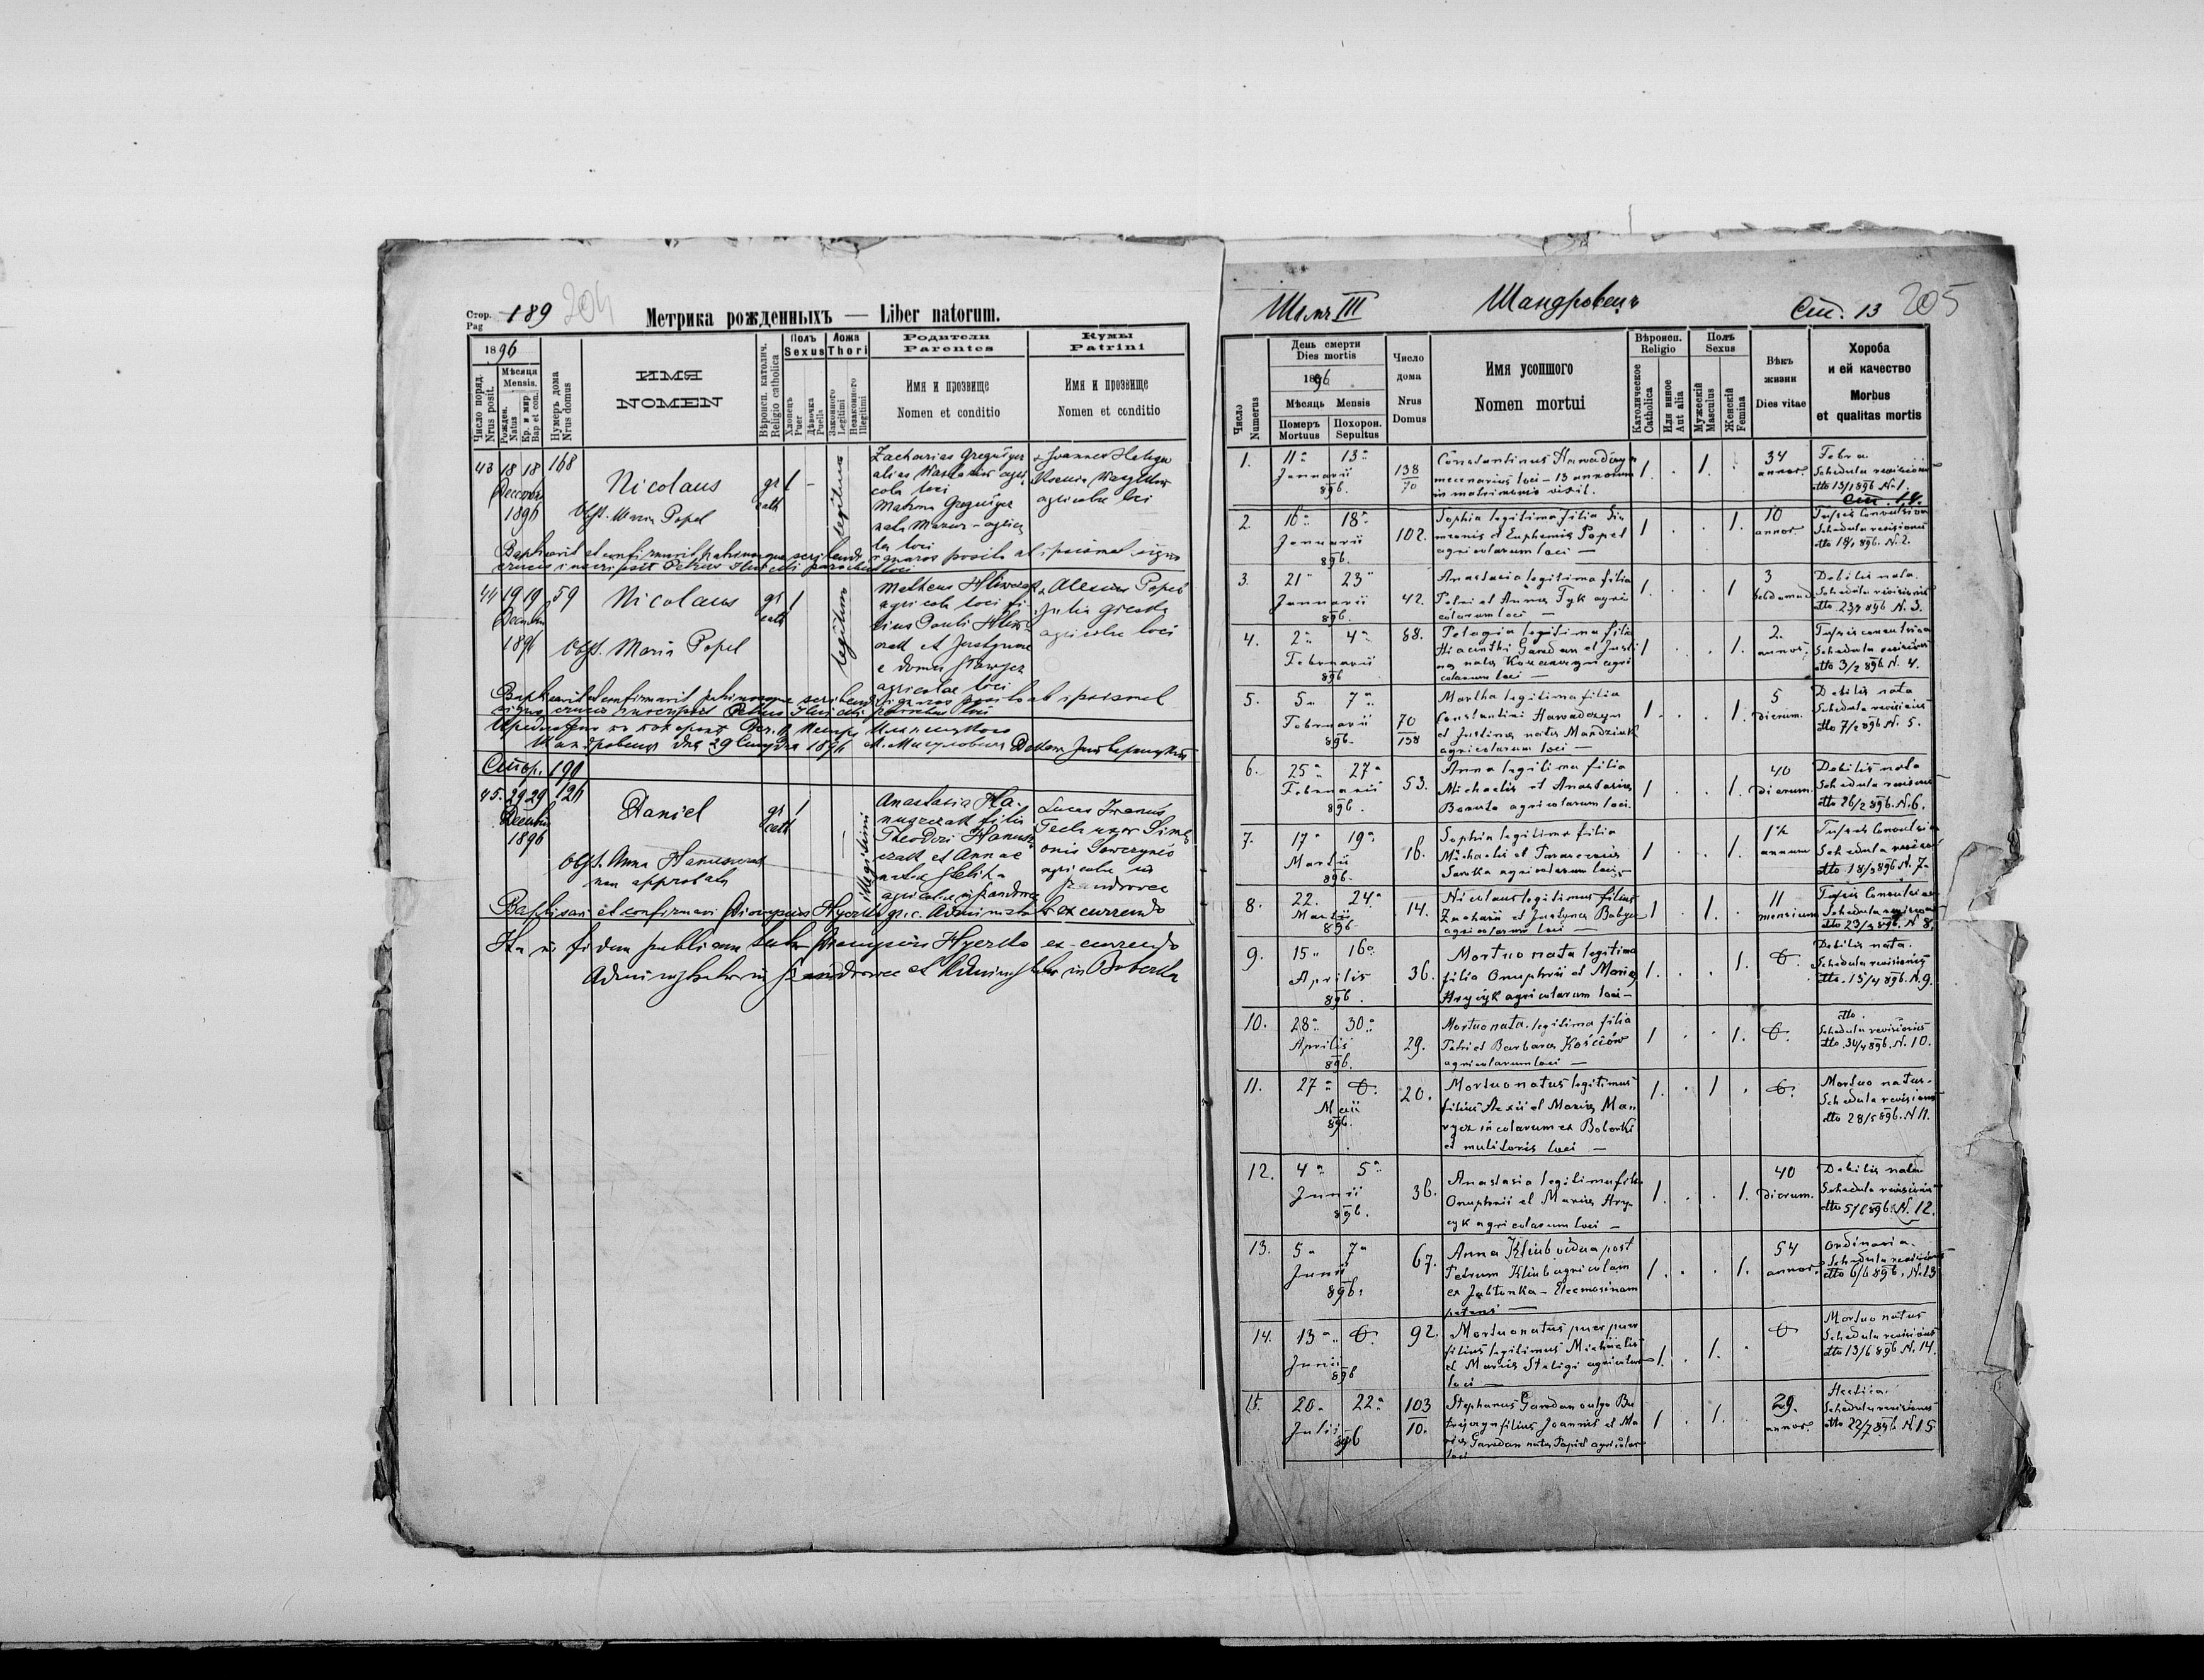 Стор. Pag 189 204
Метрика рожденныхъ — Liber natorum.
1896
Число поряд. Nrus posit.
Мѣсяца Mensis.
Рожден. Natus
Кр. и мир Bap et con.
Нумеръ дома Nrus domus
ИМЯ
NOMEN
Вѣроисп. католич. Religio catholica
Полъ Sexus
Хлопецъ Puer
Дѣвочка Puella
Ложа Thori
Законного Legitimi
Незаконного Illegitimi
Родители
Parentes
Имя и прозвище
Nomen et conditio
Кумы
Patrini
Имя и прозвище
Nomen et conditio
43 18 18 168
Decembr
1896
Nicolaus
Obst. Maria Popel
gr. cath
1 -
legitimus
Zacharias
alias agri
cola loci
Matrona
nata agrico
lae loci
+ Joannes
agricolae loci
Baptisavit et confirmavit patrinosque scribendi ignaros posito ab ipsismet signo
crucis inscripsit Petrus parochus loci
44 19 19 59
Decembr
1896
Nicolaus
Obst. Maria Popel
gr. cath
1
legitimus
Matheus
agricola loci fi
lius Pauli
et Justynae
e domo
agricolae loci
+ Alexius Popel
Julia
agricolae loci
Baptisavit et confirmavit patrinosque scribendi ignaros posito ab ipsismet
signo crucis inscripsit Petrus parochus loci
дня 29 1896
Стор. 190
45. 29 29 126
Decembr
1896
Daniel
Obst. Anna
non approbata
gr. cath
1
illegitimi
Anastasia Ha-
nuszczak filia
Theodori Hanusz
czak et Annae
natae
agricolae in Szandrowec
Lucas
Tecla uxor Sime
onis
agricolae in
Szandrowec
Baptisavi et confirmavi Dionysius Hyezdo gr. c. Administrator ex currendo
Ita in fidem publicam Dionysius Hyezdo ex-currendo
Administrator in Szandrowec et Administrator in Boberka
Томъ III
Шандровець
Стр. 13 205
Число Numerus
День смерти
Dies mortis
1896
Мѣсяць Mensis
Померъ Mortuus
Похорон. Sepultus
Число дома Nrus Domus
Имя усопшого
Nomen mortui
Вѣроисп. Religio
Католическое Catholica
Или инное Aut alia
Полъ Sexus
Мужескій Masculus
Женскій Femina
Вѣкъ жизни
Dies vitae
Хороба
и ей качество
Morbus
et qualitas mortis
1. 11 13 Januarii 896. 138/70
Constantinus Hawadzyn
mercenarius loci - 13 annorum
in matrimonio vixit.
1 . 1. . 34 annor.
Febra.
Schedula revisionis
dtto 13/1 896 N. 1.
Стр. 14.
2. 16 18 Januarii 896. 102.
Sophia legitima filia Si-
meonis et Euphemia Popel
agricolarum loci —
1 . . 1. 10 annor.
Tussis Convulsiva
Schedula revisionis
dtto 18/1 896. N. 2.
3. 21 23 Januarii 896. 42.
Anastasia legitima filia
Petri et Anna Tyk agri
colarum loci —
1. . . 1 3 hebdomad.
Debilis nata.
Schedula revisionis
dtto 23/1 896 N. 3.
4. 2 4 Februarii 896 68.
Pelagia legitima filia
Hiacinthi Gawdan et Justi
na nata agri
colarum loci —
1 . . 1. 2. annor.
Tussis convulsiva
Schedula revisionis
dtto 3/2 896 N. 4.
5. 5 7 Februarii 896. 70/138
Martha legitima filia
Constantini Hawadzyn
et Justina nata Mandziuk
agricolarum loci —
1. . . 1. 5 dierum.
Debilis nata
Schedula revisionis
dtto 7/2 896 N. 5.
6. 25 27 Februarii 896. 53.
Anna legitima filia
Michaelis et Anastasia
agricolarum loci.
1 . . 1. 40 dierum.
Debilis nata
Schedula revisionis
dtto 26/2 896. N. 6.
7. 17 19 Martii 896. 16.
Sophia legitima filia
Michaelis et Parascevia
agricolarum loci,—
1 . . 1. 1½ annum
Tussis Convulsiva
Schedula revisionis
dtto 18/3 896 N. 7.
8. 22. 24 Martii 896 14.
Nicolaus legitimus filius
Zacharii et Justyna
agricolarum loci —
1 . 1. . 11 mensium
Tussis Convulsiva
Schedula revisionis
dtto 23/3 896. N 8.
9. 15 16 Aprilis 896. 36.
Mortuo nata legitima
filia Onuphrii et Maria
Hrycyk agricolarum loci —
1. . . 1.
Debilis nata.
Schedula revisionis
dtto. 15/4 896. N. 9.
10. 28 30 Aprilis 896. 29.
Mortuo nata. legitima filia
Petri et Barbara Kościów
agricolarum loci —
1 . . 1.
dtto.
Schedula revisionis
dtto. 30/4 896. N. 10.
11. 27 Maii 896. 20.
Mortuo natus legitimus
filius Alexii et Maria Ma-
rycz incolarum ex Boberki
et molitoris loci —
1. . 1 .
Mortuo natus.
Schedula revisionis
dtto 28/5 896. N 11.
12. 4 5 Junii 896. 36.
Anastasia legitima filia
Onuphrii et Maria Hry-
cyk agricolarum loci —
1. . . 1. 40 dierum.
Debilis nata
Schedula revisionis
dtto 5/6 896. N. 12.
13. 5 7 Junii 896. 67.
Anna Klimb vidua post
Petrum Klimb agricolam
ex Jabłonka — Eleemosinam
petens —
1. . . 1. 54 annor.
Ordinaria.
Schedula revisionis
dtto 6/6 896. N. 13
14. 13 Junii 896 92.
Mortuo natus puer puer
filius legitimus Michaelis
et Maria Steligi agricolarum
loci —
1. . 1. .
Mortuo natus
Schedula revisionis
dtto 13/6 896 N. 14.
15. 20 22 Julii 896 103/10.
Stephanus Gawdan vulgo
filius Joannis et Ma
ria Gawdan nata Popiel agricolar.
loci —
1 . 1. . 29. annor.
Hectica.
Schedula revisionis
dtto 22/7 896 N. 15.